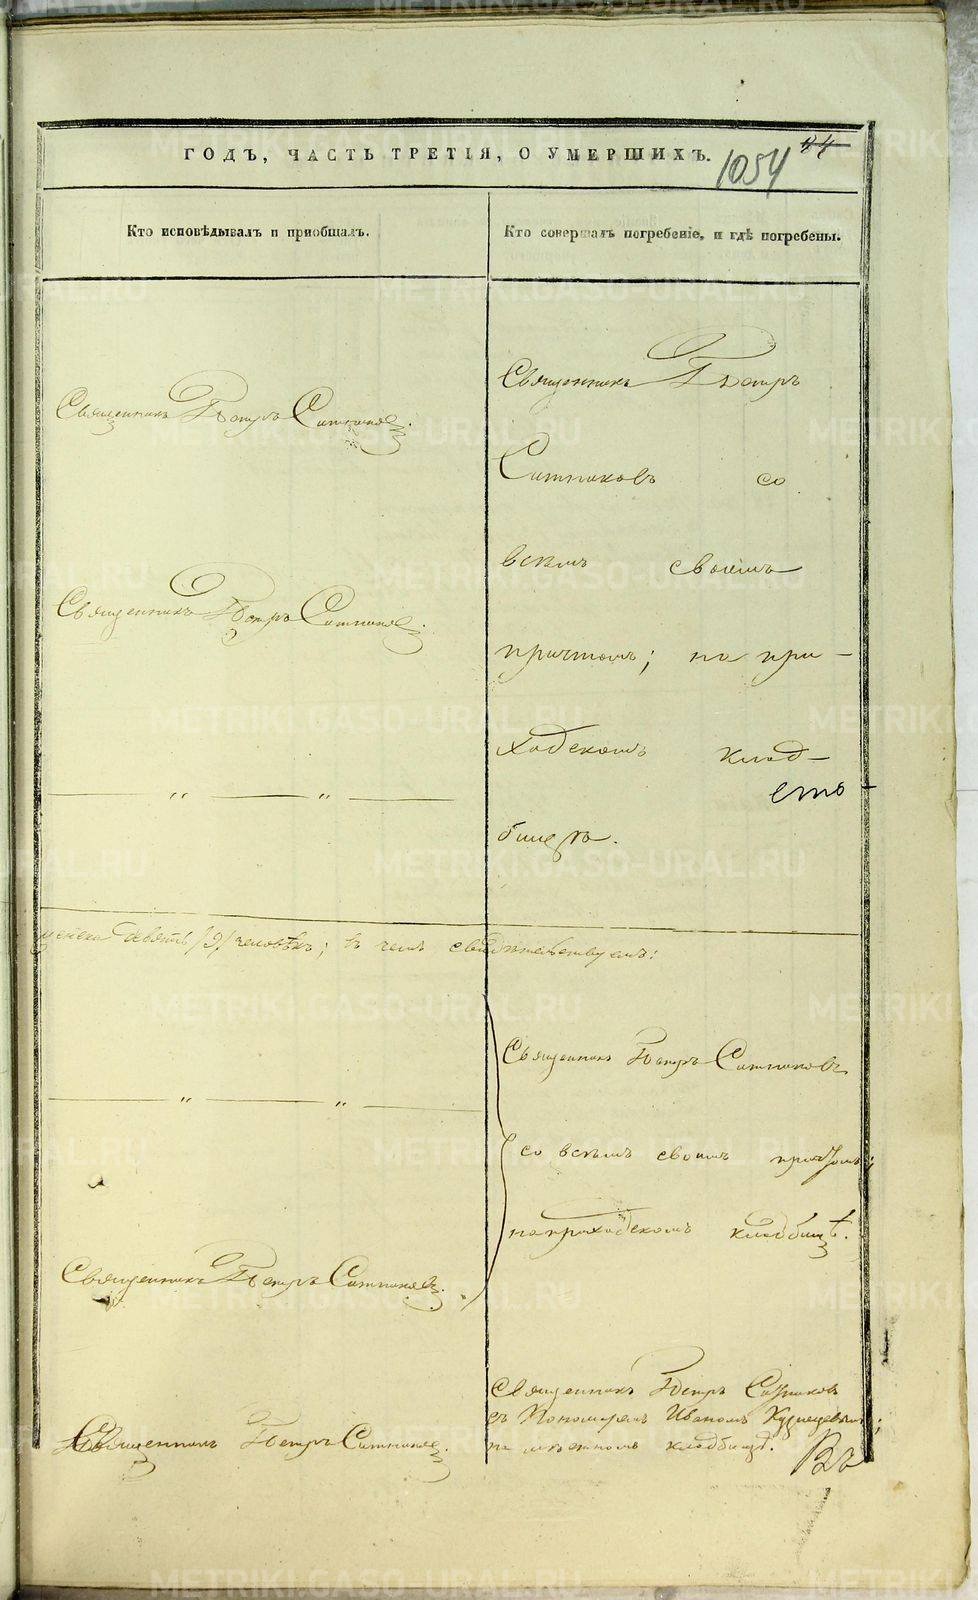 ГОДЪ, ЧАСТЬ ТРЕТІЯ, О УМЕРШИХЪ.
1054
Кто исповѣдывалъ и пріобщалъ.
Кто совершалъ погребеніе, и гдѣ погребены.
Священникъ Петръ Ситников
Священникъ Петръ Ситников
Священникъ Петръ
Ситниковъ со
всѣмъ своимъ
причтомъ; на при-
ходскомъ клад-
бищѣ.
девять /9/ человѣкъ; въ чемъ свидѣтельствуемъ:
Священникъ Петръ Ситниковъ
со всѣмъ своимъ причтомъ;
на приходскомъ кладбищѣ.
Священникъ Петръ Ситниковъ.
Священникъ Петръ Ситников.
Священникъ Петръ Ситников
съ Пономаремъ Иваномъ Кузнецовымъ;
на мѣстномъ кладбищѣ.
Въ
METRIKI.GASO-URAL.RU